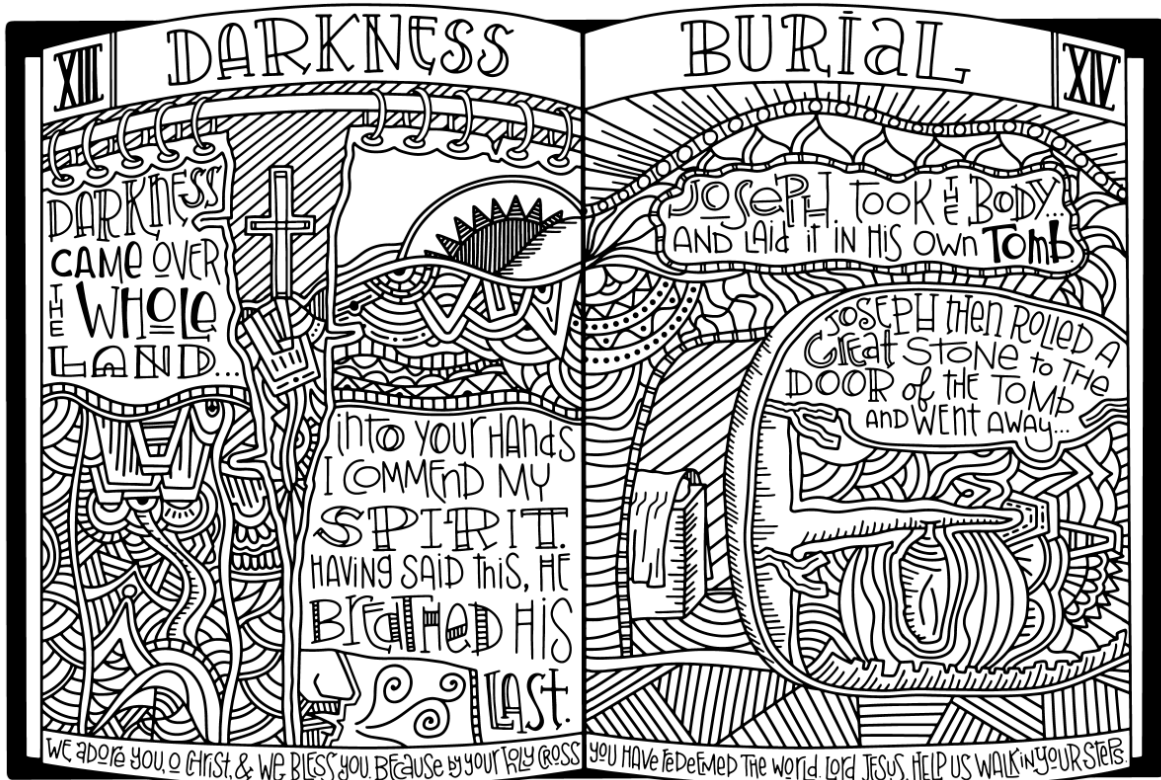 XIII
DARKNESS
DARKNESS
CAME OVER
THE WHOLE
LAND...
INTO YOUR HANDS
I COMMEND MY
SPIRIT.
HAVING SAID THIS, HE
BREATHED HIS
LAST.
WE ADORE YOU, O CHRIST, & WE BLESS YOU. BECAUSE BY YOUR HOLY CROSS
BURIAL
XIV
JOSEPH. TOOK THE BODY...
AND LAID IT IN HIS OWN TOMB
JOSEPH THEN ROLLED A
GREAT STONE TO THE
DOOR of THE TOMB
AND WENT AWAY...
YOU HAVE REDEEMED THE WORLD. LORD JESUS, HELP US WALK IN YOUR STEPS.